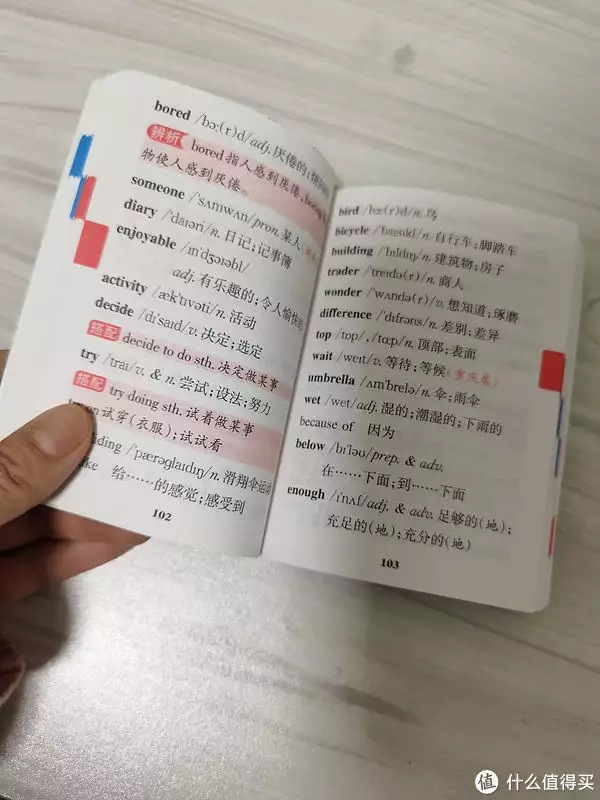 bored /bɔː(r)d/adj. 厌倦的;
辨析 bored指人感到厌倦,
物使人感到厌倦。
someone /ˈsʌmwʌn/pron. 某人
diary /ˈdaɪəri/n. 日记;记事簿
enjoyable /ɪnˈdʒɔɪəbl/
adj. 有乐趣的;令人愉快的
activity /ækˈtɪvəti/n. 活动
decide /dɪˈsaɪd/v. 决定;选定
搭配 decide to do sth. 决定做某事
try /traɪ/v. & n. 尝试;设法;努力
搭配 try doing sth. 试着做某事
试穿(衣服);试试看
/ˈpærəɡlaɪdɪŋ/n. 滑翔伞运动
给……的感觉;感受到
102
bird /bɜː(r)d/n. 鸟
bicycle /ˈbaɪsɪkl/n. 自行车;脚踏车
building /ˈbɪldɪŋ/n. 建筑物;房子
trader /ˈtreɪdə(r)/n. 商人
wonder /ˈwʌndə(r)/v. 想知道;琢磨
difference /ˈdɪfrəns/n. 差别;差异
top /tɒp/,/tɑːp/n. 顶部;表面
wait /weɪt/v. 等待;等候(重庆卷)
umbrella /ʌmˈbrelə/n. 伞;雨伞
wet /wet/adj. 湿的;潮湿的;下雨的
because of 因为
below /bɪˈləʊ/prep. & adv.
在……下面;到……下面
enough /ɪˈnʌf/adj. & adv. 足够的(地);
充足的(地);充分的(地)
103
值 什么值得买